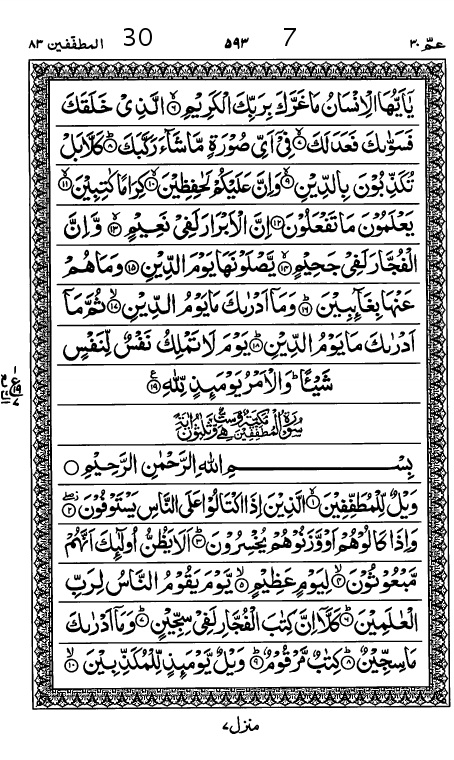 المطففين ٨٣ 30 ٥٩٣ 7 عمّ ٣٠
يٰۤاَيُّهَا الْاِنْسَانُ مَا غَرَّكَ بِرَبِّكَ الْكَرِيْمِ ۙ‏ ٦ الَّذِىْ خَلَقَكَ
فَسَوّٰٮكَ فَعَدَلَكَ ۙ‏ ٧ فِىْۤ اَىِّ صُوْرَةٍ مَّا شَآءَ رَكَّبَكَ ؕ‏ ٨ كَلَّا بَلْ
تُكَذِّبُوْنَ بِالدِّيْنِ ۙ‏ ٩ وَاِنَّ عَلَيْكُمْ لَحٰفِظِيْنَ ۙ‏ ١٠ كِرَامًا كَاتِبِيْنَ ۙ‏ ١١
يَعْلَمُوْنَ مَا تَفْعَلُوْنَ‏ ١٢ اِنَّ الْاَبْرَارَ لَفِىْ نَعِيْمٍ ۚ‏ ١٣ وَّاِنَّ
الْفُجَّارَ لَفِىْ جَحِيْمٍ ۚۖ‏ ١٤ يَّصْلَوْنَهَا يَوْمَ الدِّيْنِ‏ ١٥ وَمَا هُمْ
عَنْهَا بِغَآٮِٕبِيْنَ ؕ‏ ١٦ وَمَاۤ اَدْرٰٮكَ مَا يَوْمُ الدِّيْنِ ۙ‏ ١٧ ثُمَّ مَاۤ
اَدْرٰٮكَ مَا يَوْمُ الدِّيْنِ ؕ‏ ١٨ يَوْمَ لَا تَمْلِكُ نَفْسٌ لِّنَفْسٍ
شَيْــًٔا ؕ وَالْاَمْرُ يَوْمَٮِٕذٍ لِّلّٰهِ‏ ١٩
سُوْرَةُ الْمُطَفِّفِيْنَ مَكِّيَّةٌ وَّهِىَ سِتٌّ وَّثَلٰثُوْنَ اٰيَةً
بِسْمِ اللهِ الرَّحْمٰنِ الرَّحِيْمِ
وَيْلٌ لِّلْمُطَفِّفِيْنَ ۙ‏ ١ الَّذِيْنَ اِذَا اكْتَالُوْا عَلَى النَّاسِ يَسْتَوْفُوْنَ ۖ‏ ٢
وَاِذَا كَالُوْهُمْ اَوْ وَّزَنُوْهُمْ يُخْسِرُوْنَ ؕ‏ ٣ اَلَا يَظُنُّ اُولٰٓٮِٕكَ اَنَّهُمْ
مَّبْعُوْثُوْنَ ۙ‏ ٤ لِيَوْمٍ عَظِيْمٍ ۙ‏ ٥ يَّوْمَ يَقُوْمُ النَّاسُ لِرَبِّ
الْعٰلَمِيْنَ ؕ‏ ٦ كَلَّاۤ اِنَّ كِتٰبَ الْفُجَّارِ لَفِىْ سِجِّيْنٍ ؕ‏ ٧ وَمَاۤ اَدْرٰٮكَ
مَا سِجِّيْنٌ ؕ‏ ٨ كِتٰبٌ مَّرْقُوْمٌ ؕ‏ ٩ وَيْلٌ يَّوْمَٮِٕذٍ لِّلْمُكَذِّبِيْنَ ۙ‏ ١٠
منزل ٧